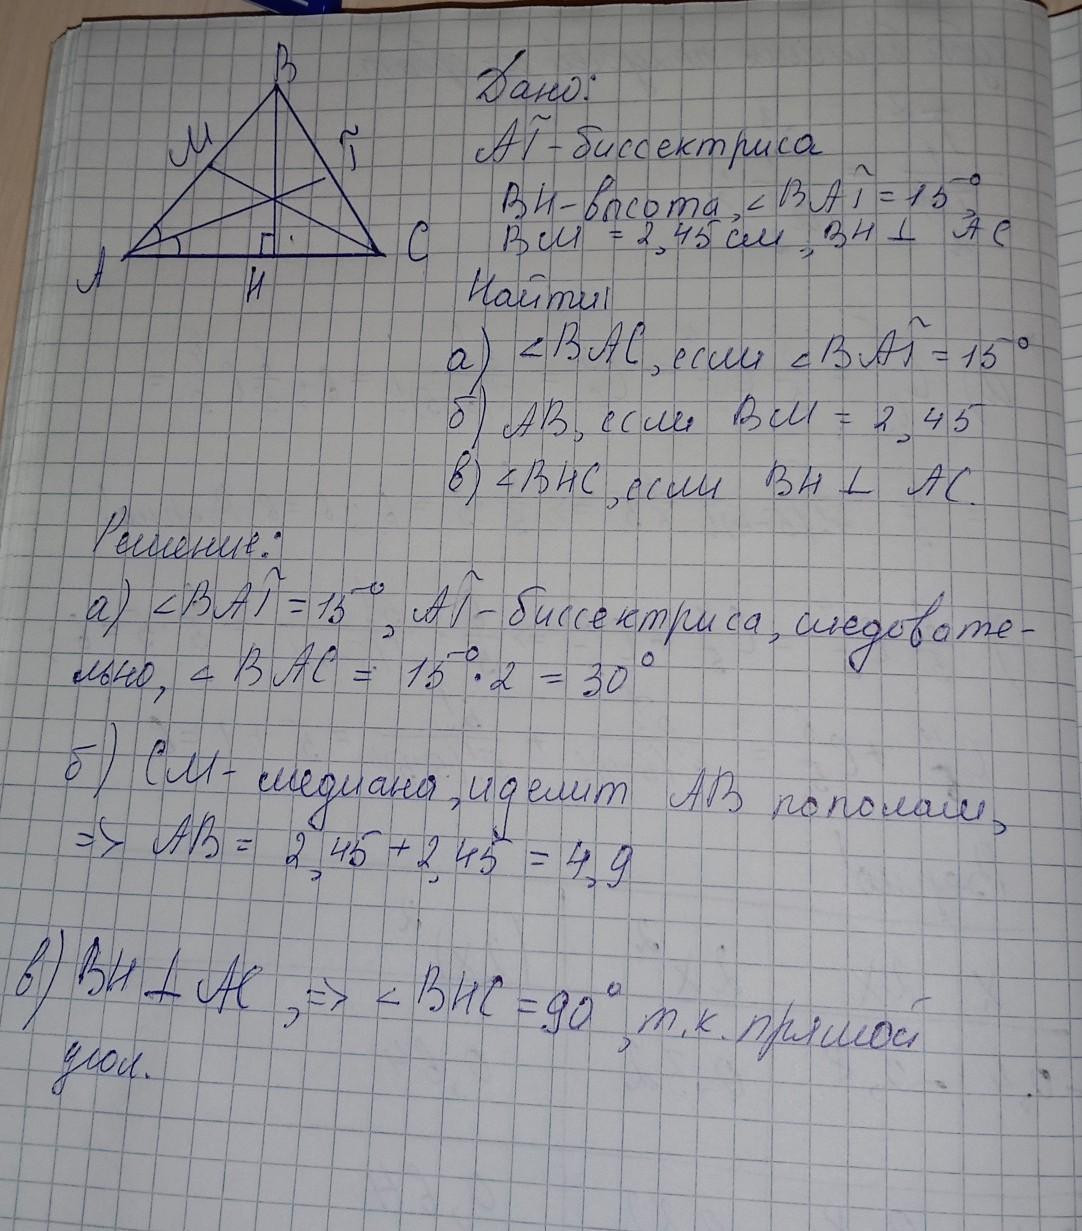 B
M
T̃
A
H
C
Дано:
AT̃ - биссектриса
BH - высота, ∠BAT̃ = 15°,
BM = 2,45 см, BH ⊥ AC
Найти:
а) ∠BAC, если ∠BAT̃ = 15°
б) AB, если BM = 2,45
в) ∠BHC, если BH ⊥ AC.
Решение:
а) ∠BAT̃ = 15°, AT̃ - биссектриса, следовате-
льно, ∠BAC = 15° · 2 = 30°
б) CM - медиана, и делит AB пополам,
=> AB = 2,45 + 2,45 = 4,9
в) BH ⊥ AC, => ∠BHC = 90°, т.к. прямой
угол.